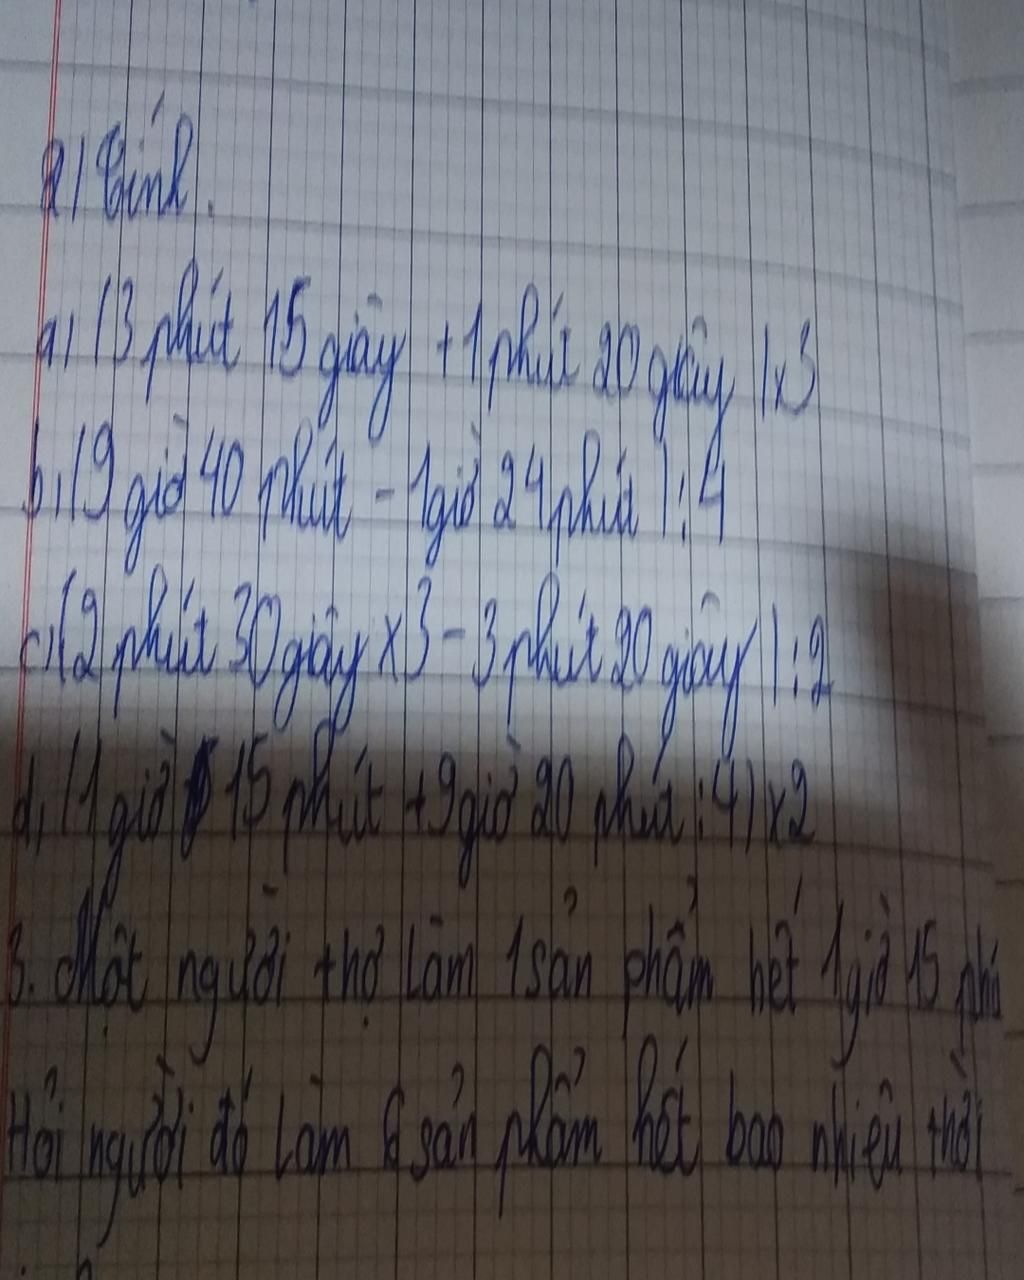 2) Tính.
a, (3 phút 15 giây + 1 phút 20 giây) x3
b, (9 giờ 40 phút - 1 giờ 24 phút) : 4
c, (2 phút 30 giây x 3 - 3 phút 20 giây) : 2
d, (1 giờ 15 phút + 9 giờ 20 phút : 4) x2
3. Một người thợ làm 1 sản phẩm hết 1 giờ 15 phú
Hỏi người đó làm 6 sản phẩm hết bao nhiêu thời